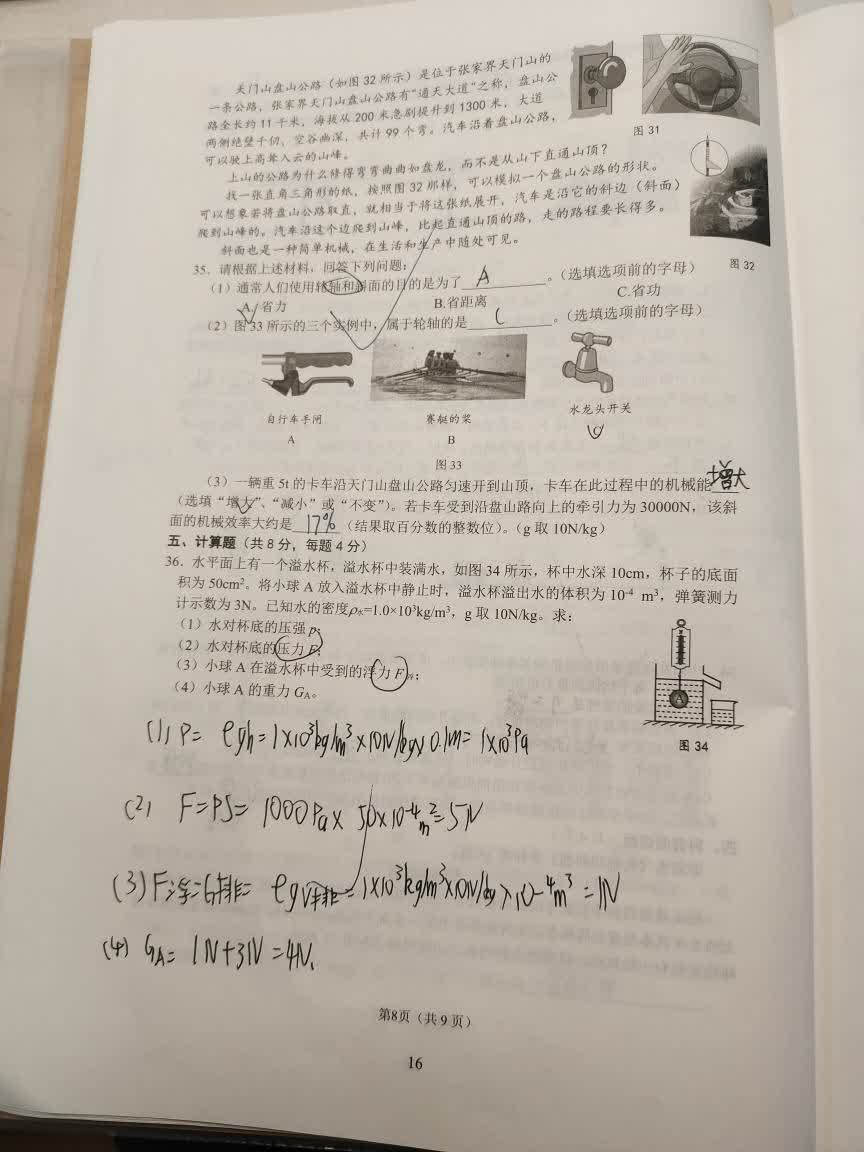 天门山盘山公路（如图 32 所示）是位于张家界天门山的
一条公路，张家界天门山盘山公路有“通天大道”之称，盘山公
路全长约 11 千米，海拔从 200 米急剧提升到 1300 米，大道
两侧绝壁千仞，空谷幽深，共计 99 个弯。汽车沿着盘山公路，
可以驶上高耸入云的山峰。
图 31
上山的公路为什么修得弯弯曲曲如盘龙，而不是从山下直通山顶？
找一张直角三角形的纸，按照图 32 那样，可以模拟一个盘山公路的形状。
可以想象若将盘山公路取直，就相当于将这张纸展开，汽车是沿它的斜边（斜面）
爬到山峰的。汽车沿这个边爬到山峰，比起直通山顶的路，走的路程要长得多。
斜面也是一种简单机械，在生活和生产中随处可见。
图 32
35．请根据上述材料，回答下列问题：
（1）通常人们使用轮轴和斜面的目的是为了 A 。（选填选项前的字母）
A. 省力 B.省距离 C.省功
（2）图 33 所示的三个实例中，属于轮轴的是 C 。（选填选项前的字母）
自行车手闸 赛艇的桨 水龙头开关
A B C
图 33
（3）一辆重 5t 的卡车沿天门山盘山公路匀速开到山顶，卡车在此过程中的机械能 增大
（选填“增大”、“减小”或“不变”）。若卡车受到沿盘山路向上的牵引力为 30000N，该斜
面的机械效率大约是 17% （结果取百分数的整数位）。（g 取 10N/kg）
五、计算题（共 8 分，每题 4 分）
36．水平面上有一个溢水杯，溢水杯中装满水，如图 34 所示，杯中水深 10cm，杯子的底面
积为 50cm²。将小球 A 放入溢水杯中静止时，溢水杯溢出水的体积为 10⁻⁴ m³，弹簧测力
计示数为 3N。已知水的密度ρ水=1.0×10³kg/m³，g 取 10N/kg。求：
（1）水对杯底的压强 p；
（2）水对杯底的压力 F；
（3）小球 A 在溢水杯中受到的浮力 F浮；
（4）小球 A 的重力 GA。
A
图 34
(1) P= ρgh=1×10³kg/m³×10N/kg×0.1m=1×10³Pa
(2) F=PS=1000Pa×50×10⁻⁴m²=5N
(3) F浮=G排=ρgV排=1×10³kg/m³×10N/kg×10⁻⁴m³=1N
(4) GA=1N+3N=4N.
第8页（共 9 页）
16